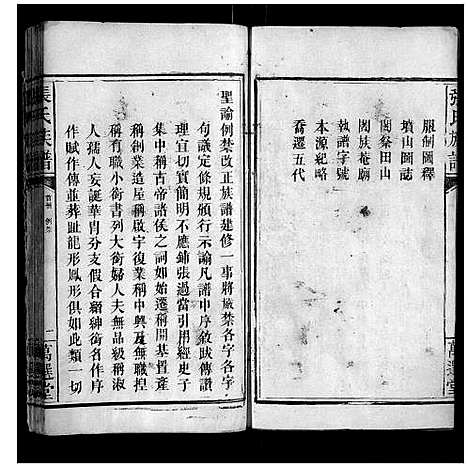 張氏族譜
服制圖釋
墳山圖誌
閤祭田山
閤族菴廟
執譜字號
本源紀略
喬遷五代
萬選堂
聖諭例禁改正族譜建修一事將嚴禁各字各字
句議定條規頒行示諭凡譜中序敘跋傳譜
理宜切實簡明不應鋪張過當引用經史子
集中稱古帝諸侯之詞如始遷開基置產
稱剏業造屋稱啟宇復業稱中興及無職捏
稱有職小銜書列大銜婦人夫無品級稱淑
人孺人妄誕華冑分支假合縉紳銜名作敘
作賦作傳並葬趾龍形鳳形俱如此類一切
張氏族譜
萬選堂